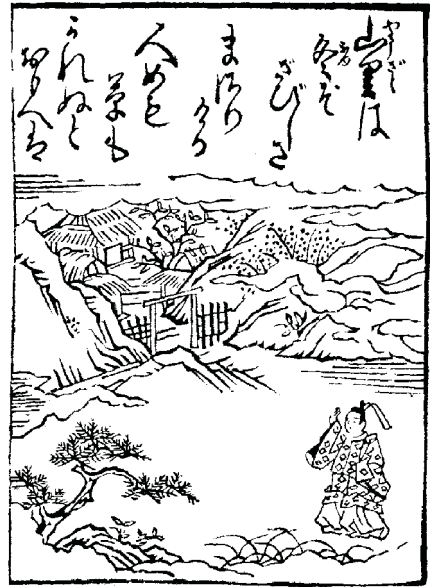 山里は
冬ぞ
さびしさ
まさり
ける
人めも
草も
かれぬと
おもへば